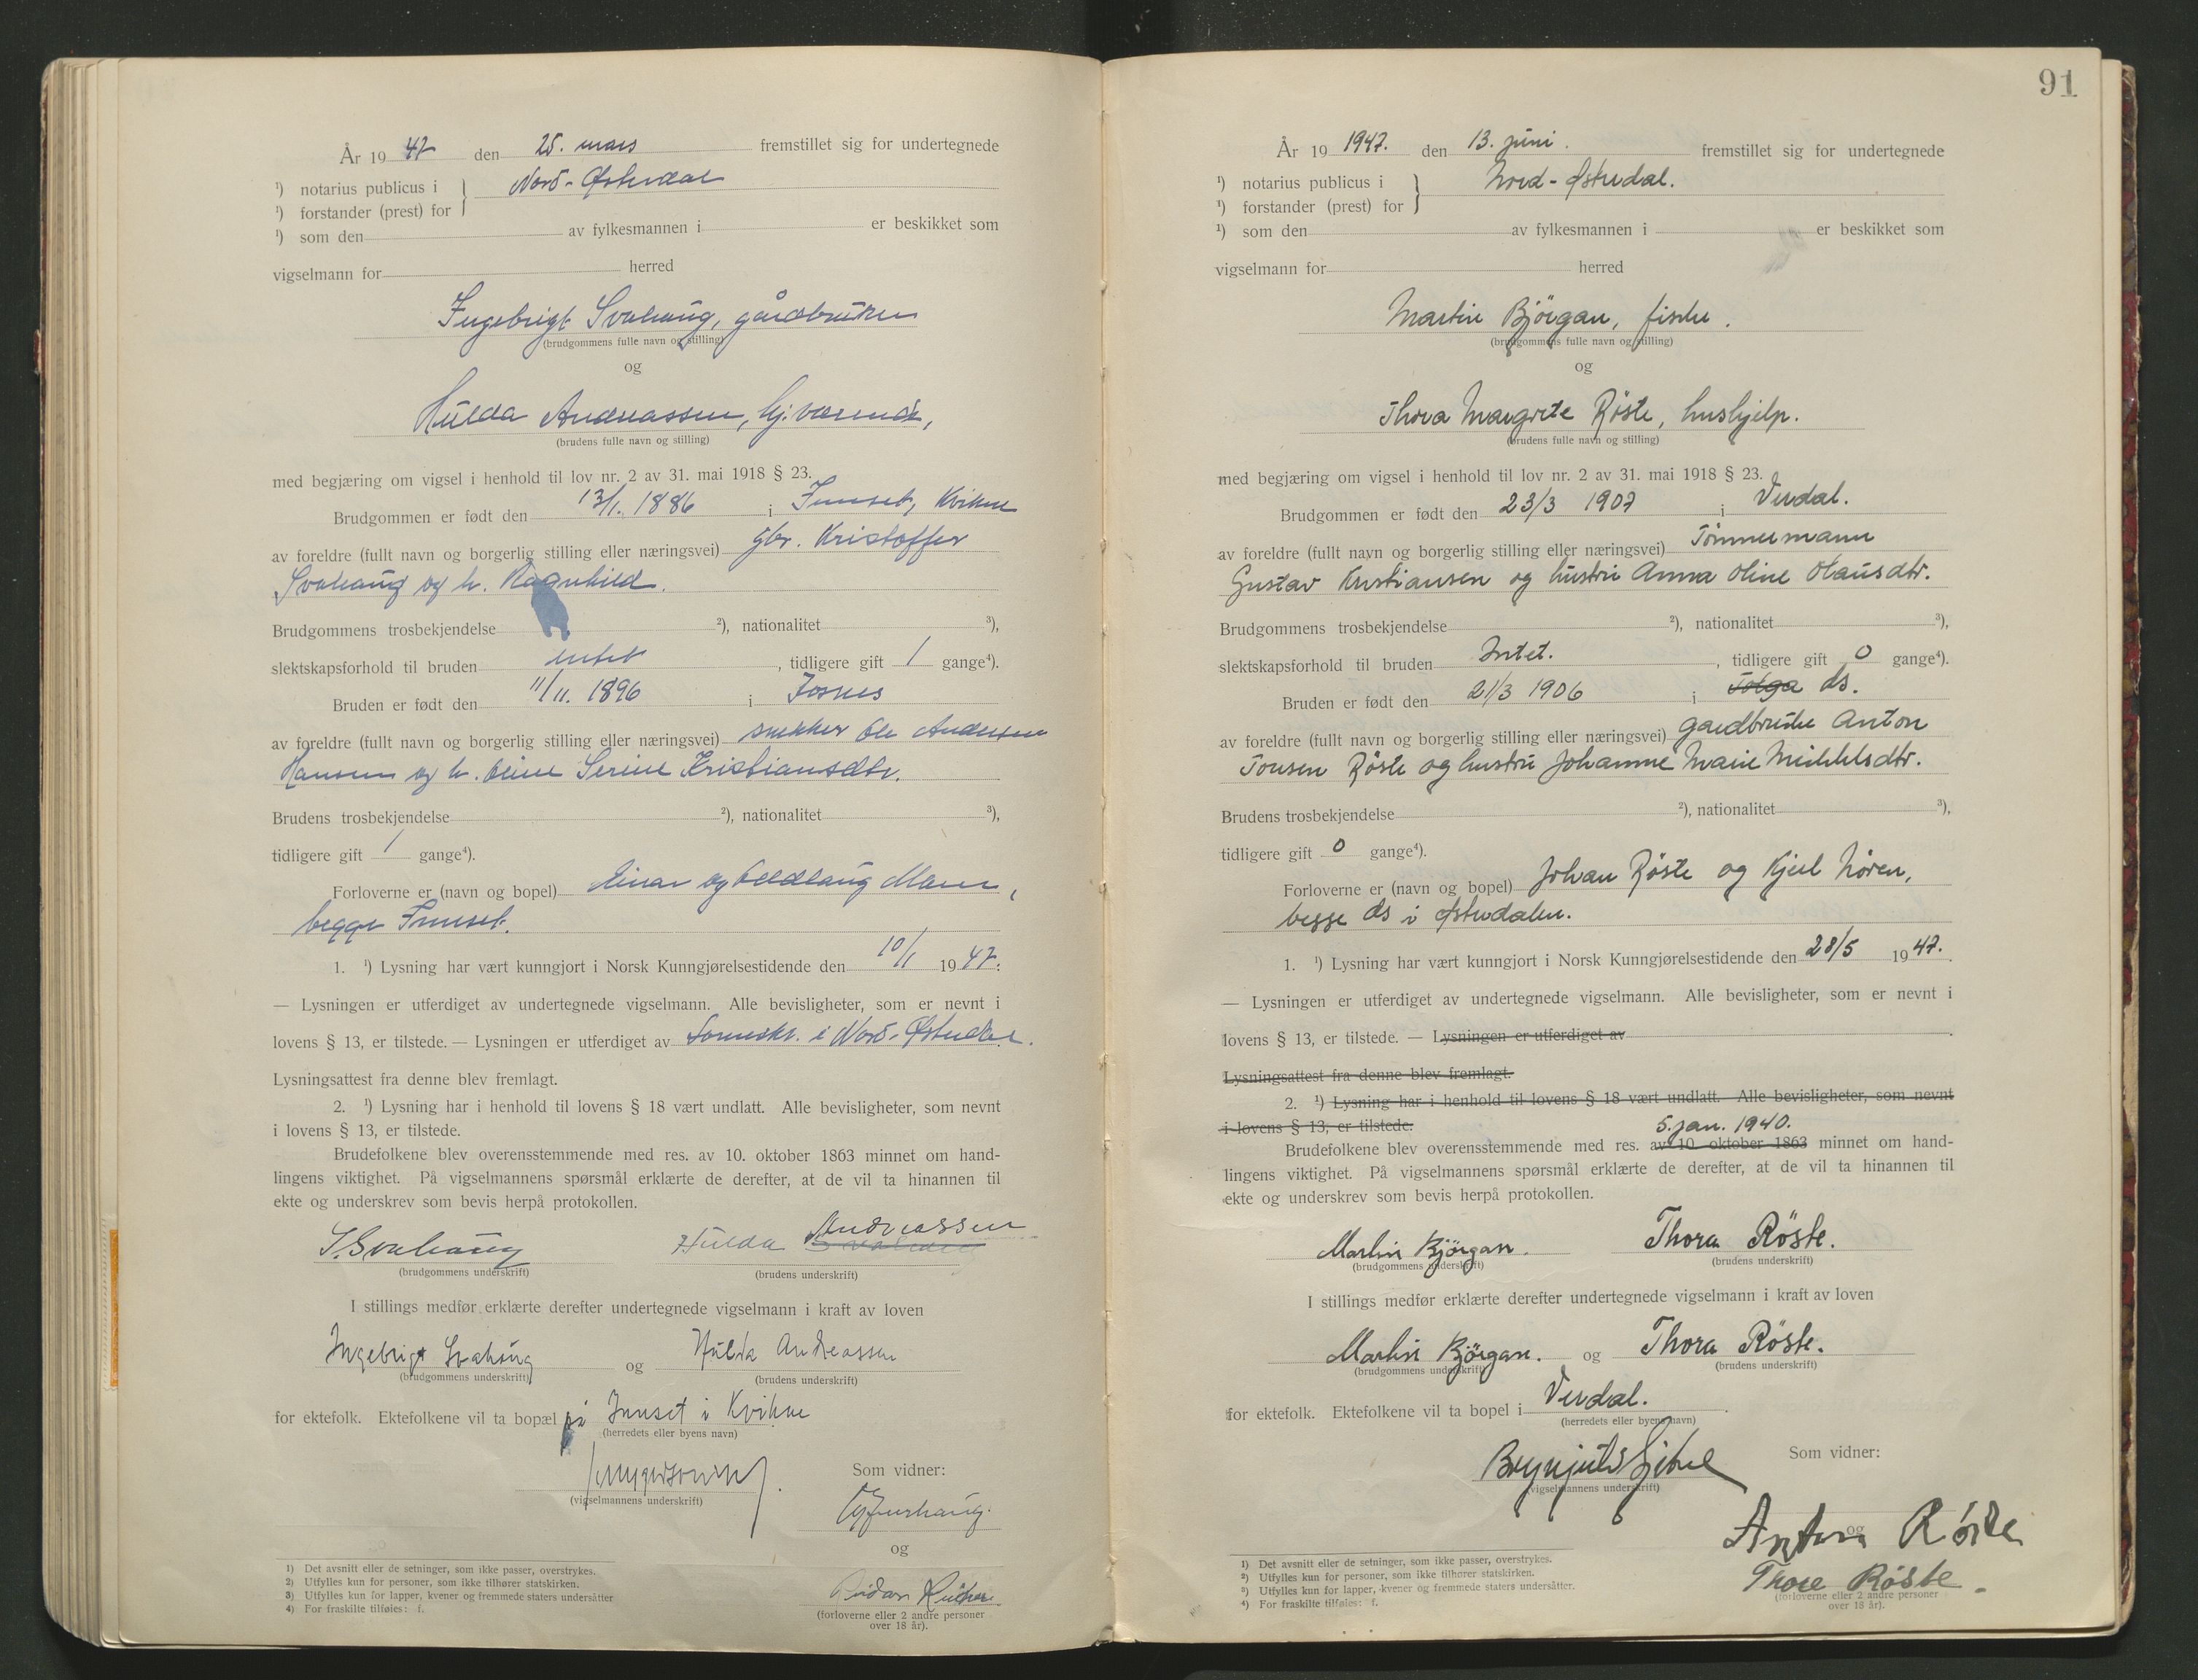 År 19 47 den 25. mars fremstillet sig for undertegnede
¹) notarius publicus i Nord-Østerdal
¹) forstander (prest) for
¹) som den av fylkesmannen i er beskikket som
vigselmann for herred
Ingebrigt Svahaug, gårdbruker
(brudgommens fulle navn og stilling)
og
Hulda Andreassen, hj.værende,
(brudens fulle navn og stilling)
med begjæring om vigsel i henhold til lov nr. 2 av 31. mai 1918 § 23.
Brudgommen er født den 13/1. 1886 i Innset, Kvikne
av foreldre (fullt navn og borgerlig stilling eller næringsvei) gbr. Kristoffer
Svahaug og h. Ragnhild.
Brudgommens trosbekjendelse ²), nationalitet ³),
slektskapsforhold til bruden intet, tidligere gift 1 gange⁴).
Bruden er født den 11/11. 1896 i Fosnes
av foreldre (fullt navn og borgerlig stilling eller næringsvei) snekker Ole Andersen
Hansen og h. Oline Serine Kristiansdtr.
Brudens trosbekjendelse ²), nationalitet ³),
tidligere gift 1 gange⁴).
Forloverne er (navn og bopel) Einar og Oddlaug Moen,
begge Innset.
1. ¹) Lysning har vært kunngjort i Norsk Kunngjørelsestidende den 10/1 19 47.
— Lysningen er utferdiget av undertegnede vigselmann. Alle bevisligheter, som er nevnt i
lovens § 13, er tilstede. — Lysningen er utferdiget av Sorenskr. i Nord-Østerdal.
Lysningsattest fra denne blev fremlagt.
2. ¹) Lysning har i henhold til lovens § 18 vært undlatt. Alle bevisligheter, som nevnt
i lovens § 13, er tilstede.
Brudefolkene blev overensstemmende med res. av 10. oktober 1863 minnet om hand-
lingens viktighet. På vigselmannens spørsmål erklærte de derefter, at de vil ta hinannen til
ekte og underskrev som bevis herpå protokollen.
I. Svahaug Hulda Andreassen
(brudgommens underskrift) (brudens underskrift)
I stillings medfør erklærte derefter undertegnede vigselmann i kraft av loven
Ingebrigt Svahaug og Hulda Andreassen
(brudgommens underskrift) (brudens underskrift)
for ektefolk. Ektefolkene vil ta bopæl på Innset i Kvikne
(herredets eller byens navn)
Som vidner:
(vigselmannens underskrift)
og
(forloverne eller 2 andre personer
over 18 år).
1) Det avsnitt eller de setninger, som ikke passer, overstrykes.
2) Utfylles kun for personer, som ikke tilhører statskirken.
3) Utfylles kun for lapper, kvener og fremmede staters undersåtter
4) For fraskilte tilføies: f.
91
År 19 1947. den 13. juni. fremstillet sig for undertegnede
¹) notarius publicus i Nord-Østerdal.
¹) forstander (prest) for
¹) som den av fylkesmannen i er beskikket som
vigselmann for herred
Martin Bjørgan, fisker.
(brudgommens fulle navn og stilling)
og
Thora Margrete Røste, hushjelp.
(brudens fulle navn og stilling)
med begjæring om vigsel i henhold til lov nr. 2 av 31. mai 1918 § 23.
Brudgommen er født den 23/3 1907 i Verdal.
av foreldre (fullt navn og borgerlig stilling eller næringsvei) Tømmermann
Gustav Kristiansen og hustru Anna Oline Olausdtr.
Brudgommens trosbekjendelse ²), nationalitet ³),
slektskapsforhold til bruden Intet., tidligere gift 0 gange⁴).
Bruden er født den 21/3 1906 i Tolga Os.
av foreldre (fullt navn og borgerlig stilling eller næringsvei) gardbruker Anton
Jonsen Røste og hustru Johanne Marie Mikkelsdtr.
Brudens trosbekjendelse ²), nationalitet ³),
tidligere gift 0 gange⁴).
Forloverne er (navn og bopel) Johan Røste og Kjell Noren,
begge Os i Østerdalen.
1. ¹) Lysning har vært kunngjort i Norsk Kunngjørelsestidende den 28/5 19 47.
— Lysningen er utferdiget av undertegnede vigselmann. Alle bevisligheter, som er nevnt i
lovens § 13, er tilstede. — Lysningen er utferdiget av
Lysningsattest fra denne blev fremlagt.
2. ¹) Lysning har i henhold til lovens § 18 vært undlatt. Alle bevisligheter, som nevnt
i lovens § 13, er tilstede.
5. jan. 1940.
Brudefolkene blev overensstemmende med res. av 10. oktober 1863 minnet om hand-
lingens viktighet. På vigselmannens spørsmål erklærte de derefter, at de vil ta hinannen til
ekte og underskrev som bevis herpå protokollen.
Martin Bjørgan. Thora Röste.
(brudgommens underskrift) (brudens underskrift)
I stillings medfør erklærte derefter undertegnede vigselmann i kraft av loven
Martin Bjørgan. og Thora Röste.
(brudgommens underskrift) (brudens underskrift)
for ektefolk. Ektefolkene vil ta bopel i Verdal.
(herredets eller byens navn)
Brynjulf Gjitrel Som vidner:
(vigselmannens underskrift)
Anton Røste
og
Thore Röste.
(forloverne eller 2 andre personer
over 18 år).
1) Det avsnitt eller de setninger, som ikke passer, overstrykes.
2) Utfylles kun for personer, som ikke tilhører statskirken.
3) Utfylles kun for lapper, kvener og fremmede staters undersåtter.
4) For fraskilte tilføies: f.